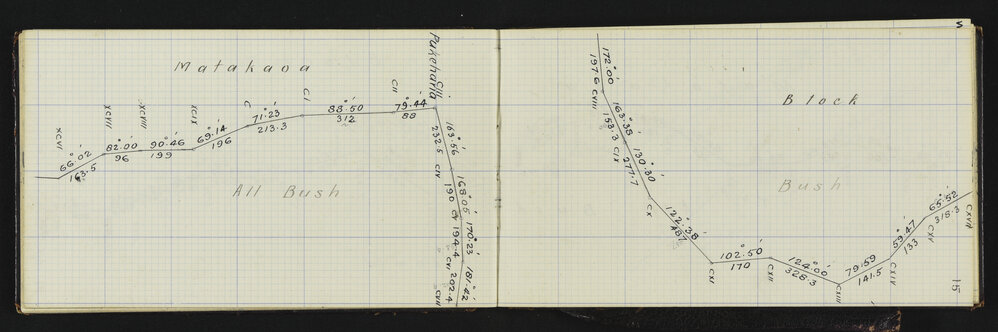 Matakaoa
XCVI
66°02'
163.5
XCVII
82°00'
96
XCVIII
90°46'
199
XCIX
69°14'
196
C
71°23'
213.3
CI
88°50'
312
CII
79°44'
88
CIII
Pukeharia
163°56'
232.5
CIV
168°05'
190
CV
170°23'
194.4
CVI
181°42'
202.4
CVII
All Bush
172°00'
197.6
CVIII
163°38'
153.3
CIX
130°30'
277.7
CX
122°38'
187
CXI
102°50'
170
CXII
124°00'
328.3
CXIII
79°59
141.5
CXIV
59°47
133
CXV
65°52
318.3
CXVI
Block
Bush
15